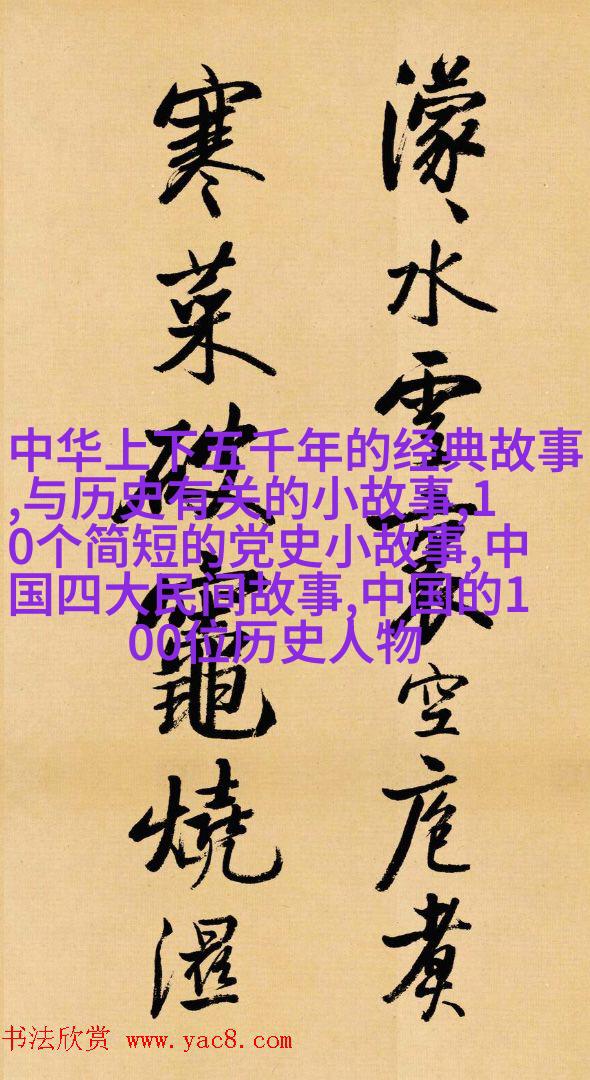 濛、水雲裏空庖煮
寒菜破竈燒濕
中华上下五千年的经典故事
,与历史有关的小故事,1
0个简短的党史小故事,中
国四大民间故事,中国的1
00位历史人物
书法欣赏 www.yac8.com